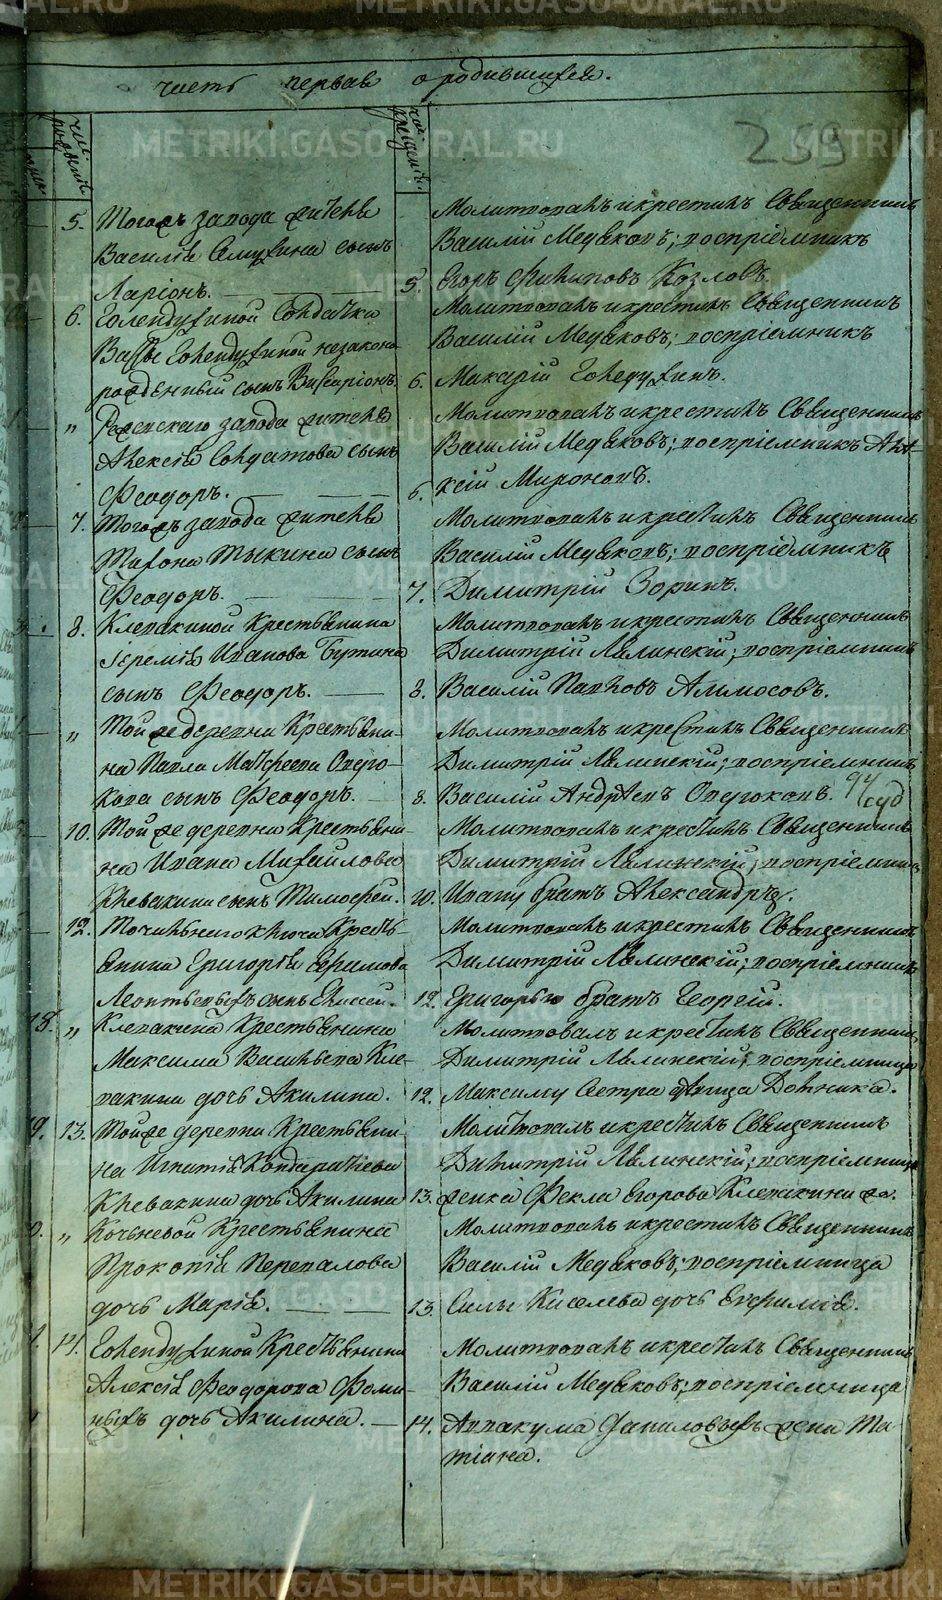 часть первая о родившихся.
числ. рожденія
числ. крещенія
259
5. Тогожъ завода жителя
Василія Семухина сынъ
Ларіонъ.
Молитвовалъ и крестилъ Священникъ
Василій Медяковъ; воспріемникъ
5. Егоръ Филиповъ Козловъ.
6. Голендухиной Солдатки
Вассы Голендухиной незаконно
рожденный сынъ Висаріонъ.
Молитвовалъ и крестилъ Священникъ
Василій Медяковъ; воспріемникъ
6. Макарій Голендухинъ.
" Режевскаго завода жителя
Алексія Солдатова сынъ
Феодоръ.
Молитвовалъ и крестилъ Священникъ
Василій Медяковъ; воспріемникъ Але-
6. ксій Мироновъ.
7. Тогожъ завода жителя
Тихона Тыкина сынъ
Феодоръ.
Молитвовалъ и крестилъ Священникъ
Василій Медяковъ; воспріемникъ
7. Димитрій Зоринъ.
8. Клевакиной Крестьянина
Іеремія Иванова Бутина
сынъ Феодоръ.
Молитвовалъ и крестилъ Священникъ
Димитрій Лялинскій; воспріемникъ
8. Василій Павловъ Алимосовъ.
" Той же деревни Крестьяни-
на Павла Матфеева
сынъ Феодоръ.
Молитвовалъ и крестилъ Священникъ
Димитрій Лялинскій; воспріемникъ
8. Василій Андреевъ
94
суд
10. Той же деревни Крестьяни-
на Ивана Михайлова
Клевакина сынъ Тимофей.
Молитвовалъ и крестилъ Священникъ
Димитрій Лялинскій; воспріемникъ
10. Ивану братъ Александръ.
12. Точильнаго ключа Кресть-
янина Григорія Ефимова
Леонтьевыхъ сынъ Елисей.
Молитвовалъ и крестилъ Священникъ
Димитрій Лялинскій; воспріемникъ
12. Григорью братъ Георгій.
18. " Клевакина Крестьянина
Максима Васильева Кле-
вакина дочь Акилина.
Молитвовалъ и крестилъ Священникъ
Димитрій Лялинскій; воспріемница
12. Максиму Сестра девица Доминика.
9. 13. Той же деревни Крестьяни-
на Игнатія Кондратіева
Клевакина дочь Акилина
Молитвовалъ и крестилъ Священникъ
Димитрій Лялинскій; воспріемница
13. Фекла Егорова Клевакина
" Кочневой Крестьянина
Прокопія Перевалова
дочь Марія.
Молитвовалъ и крестилъ Священникъ
Василій Медяковъ; воспріемница
13. Силы Киселева дочь Евфимія.
14. Голендухиной Крестьянина
Алексія Феодорова Фоми-
ныхъ дочь Акилина.
Молитвовалъ и крестилъ Священникъ
Василій Медяковъ; воспріемница
14. Аввакума Даниловыхъ жена Та-
тіана.
METRIKI.GASO-URAL.RU